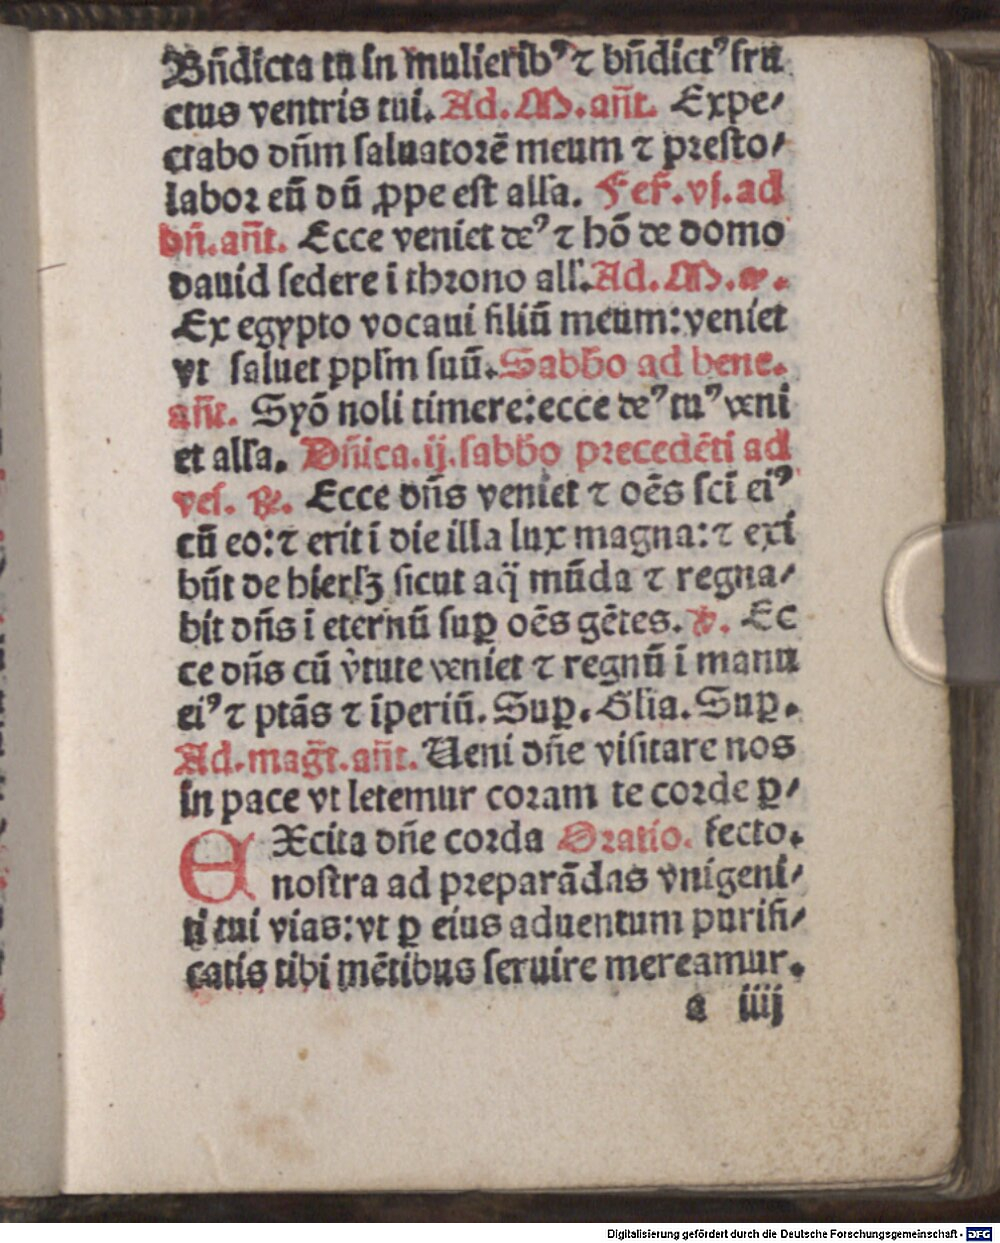 Bñdicta tu in mulierib⁹ ⁊ bñdict⁹ fru
ctus ventris tui. Ad. M. añt. Expe/
ctabo dñm saluatorē meum ⁊ presto/
labor eū dū ꝓpe est alla. Fer̄. vj. ad
bñ. añt. Ecce veniet de⁹ ⁊ hō de domo
dauid sedere ī throno all'. Ad. M. a.
Ex egypto vocaui filiū meum: veniet
vt saluet pplm suū. Sabbo ad bene.
añt. Syō noli timere: ecce de⁹ tu⁹ veni
et alla. Dñica. ij. sabbo precedēti ad
ves. ℟. Ecce dñs veniet ⁊ oēs sci ei⁹
cū eo: ⁊ erit ī die illa lux magna: ⁊ exi
būt de hierlꝫ sicut aq̄ mūda ⁊ regna/
bit dñs ī eternū suꝑ oēs gētes. ℣. Ec
ce dñs cū v̓tute veniet ⁊ regnū ī manu
ei⁹ ⁊ ptās ⁊ īperiū. Suꝑ. Glia. Suꝑ.
Ad. mag̅t. añt. Ueni dñe visitare nos
in pace vt letemur coram te corde ꝑ/
EXcita dñe corda Oratio. fecto.
nostra ad preparādas vnigeni/
ti tui vias: vt ꝑ eius aduentum purifi/
catis tibi mētibus seruire mereamur.
a iiij
Digitalisierung gefördert durch die Deutsche Forschungsgemeinschaft - DFG